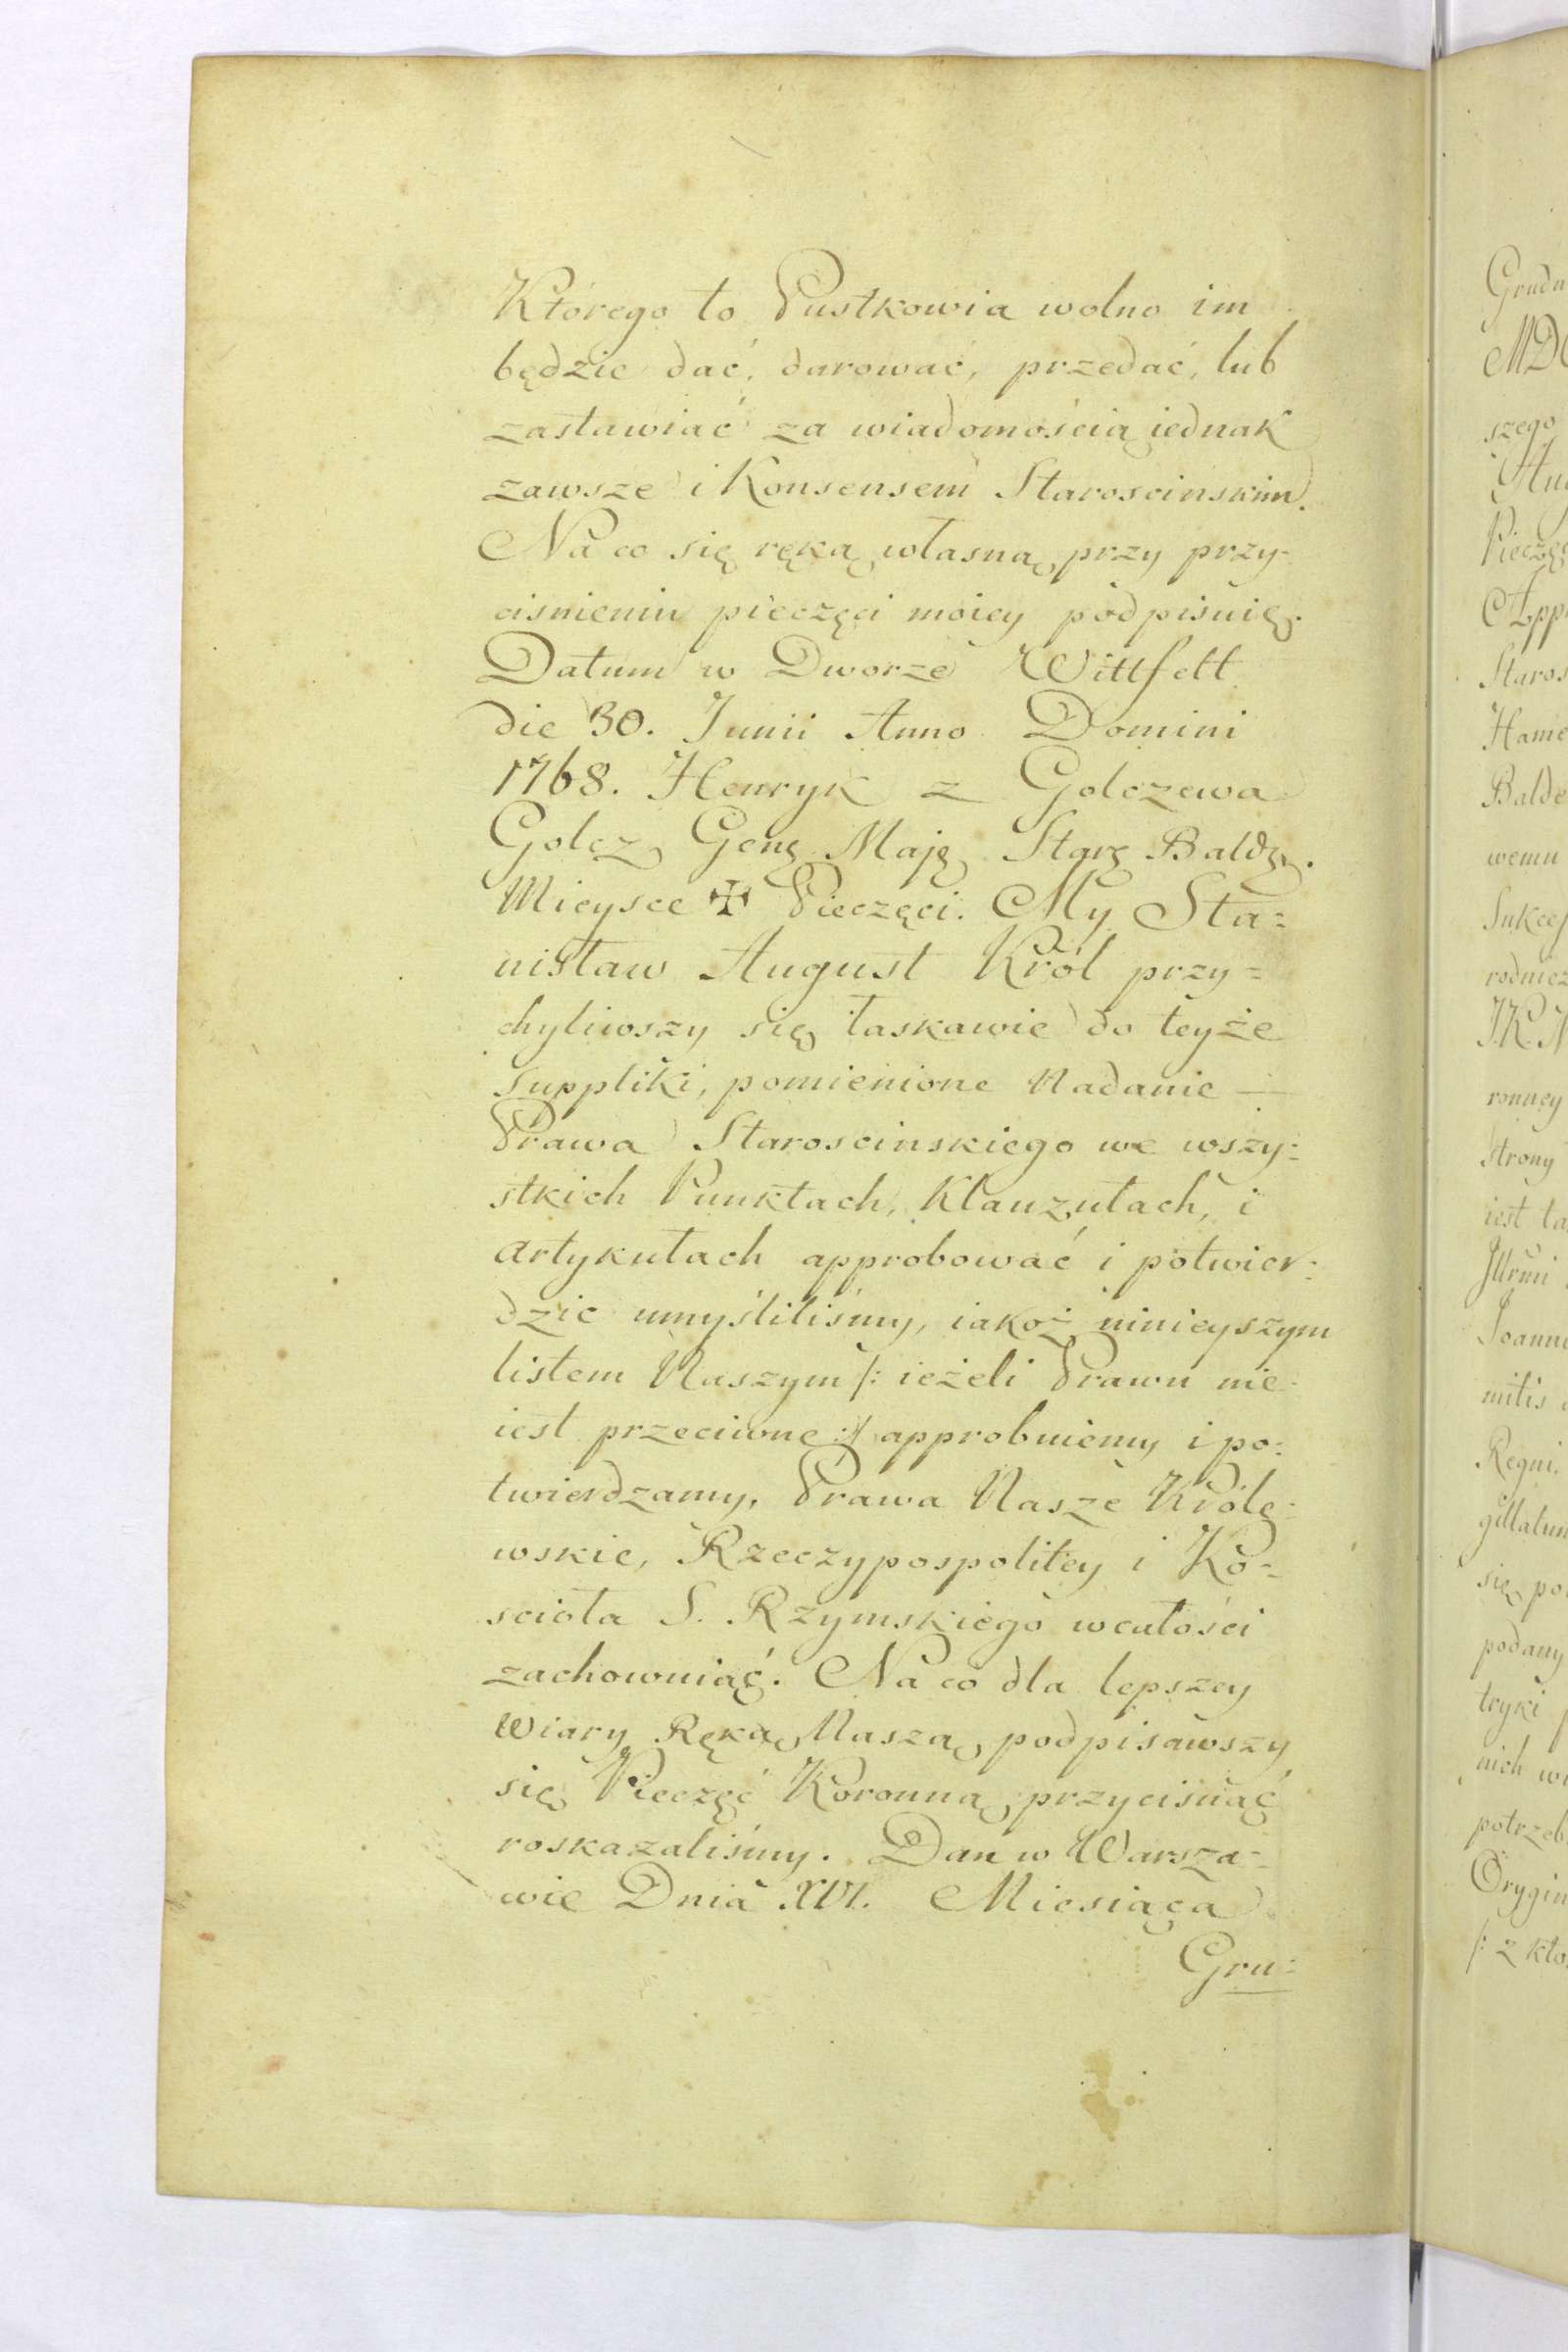 Którego to Pustkowia wolno im
będzie dać, darować, przedać, lub
zastawiać za wiadomością iednak
zawsze i Konsensem Staroscinskim.
Na co się ręką własną przy przy-
cisnieniu pieczęci moiey podpisuię.
Datum w Dworze Wittfelt
die 30. Junii Anno Domini
1768. Henryk z Golczewa
Golcz Genę Maję Starę Baldę.
Mieysce ✠ Pieczęci. My Sta=
nisław August Król przy=
chyliwszy się łaskawie do teyże
suppliki, pomienione Nadanie —
Prawa Staroscinskiego we wszy=
stkich Punktach, Klauzułach, i
artykułach approbować i potwier=
dzić umyśliliśmy, iakoż ninieyszym
listem Naszym /: ieżeli Prawu nie
iest przeciwne :/ approbuiemy i po=
twierdzamy, Prawa Nasze Króle=
wskie, Rzeczypospolitey i Ko=
scioła S. Rzymskiego wcałości
zachowuiąć. Na co dla lepszey
Wiary Ręką Naszą podpisawszy
się Pieczęć Koronną przycisnąć
roskazaliśmy. Dan w Warsza=
wie Dnia XVI. Miesiąca
Gru=
Grudn
MDC
szego
Pieczęc
App
Staros
Hame
Balde
wemu
Sukces
rodnicz
J.K.
ronney
strony
iest ta
Joann
mitis
Regni.
gillatum
się po
podany
tryki
nich
potrzeb
Orygin
/: z któ